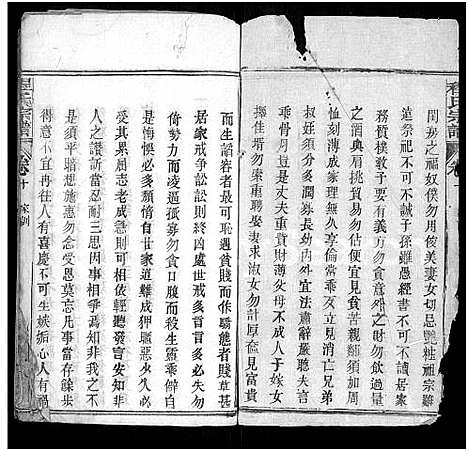 程氏宗譜
卷一
閨房之福奴僕勿用俊美妻女切忌艷粧祖宗雖
遠祭祀不可不誠子孫雖愚經書不可不讀居家
務質樸教子要有義方勿貪意外之財勿飲過量
之酒與肩挑貿易勿佔便宜見貧苦親鄰須多溫
恤刻薄成家理無久享倫常乖舛立見消亡兄弟
叔姪須多分潤寡長幼內外宜法肅辭嚴聽婦言
乖骨肉豈是丈夫重貲財薄父母不成人子嫁女
擇佳壻勿索重聘娶妻求淑女勿計厚奩見富貴
而生諂容者最可恥遇貧賤而作驕態者賤莫甚
居家戒爭訟訟則終凶處世戒多言言多必失勿
恃勢力而凌逼孤寡勿貪口腹而殺生靈乖僻自
是悔悞必多頹惰自甘家道難成狎暱惡少久必
受其累屈志老成急則可相依輕聽發言安知非
人之譖訴當忍耐三思因事相爭焉知非我之不
是須平暗想施惠勿念受恩莫忘凡事當存餘步
得意不宜再往人有喜慶不可生嫉妬心人有禍
程氏宗譜
卷十
家訓